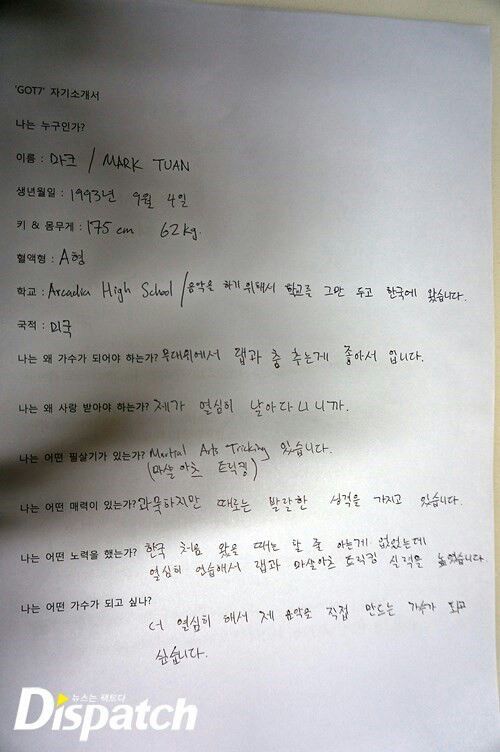 'GOT7' 자기소개서
나는 누구인가?
이름 : 마크 / MARK TUAN
생년월일 : 1993년 9월 4일
키 & 몸무게 : 175cm 62kg.
혈액형 : A형
학교 : Arcadia High School / 음악을 하기 위해서 학교를 그만 두고 한국에 왔습니다.
국적 : 미국
나는 왜 가수가 되어야 하는가? 무대위에서 랩과 춤 추는게 좋아서 입니다.
나는 왜 사랑 받아야 하는가? 제가 열심히 날아다니니까.
나는 어떤 필살기가 있는가? Martial Arts Tricking 있습니다.
(마샬 아츠 트릭킹)
나는 어떤 매력이 있는가? 과묵하지만 때로는 발랄한 성격을 가지고 있습니다.
나는 어떤 노력을 했는가? 한국 처음 왔을 때는 할 줄 아는게 없었는데
열심히 연습해서 랩과 마샬아츠 트릭킹 실력을 높였습니다.
나는 어떤 가수가 되고 싶나?
더 열심히 해서 제 음악을 직접 만드는 가수가 되고
싶습니다.
뉴스는 팩트다
Dispatch